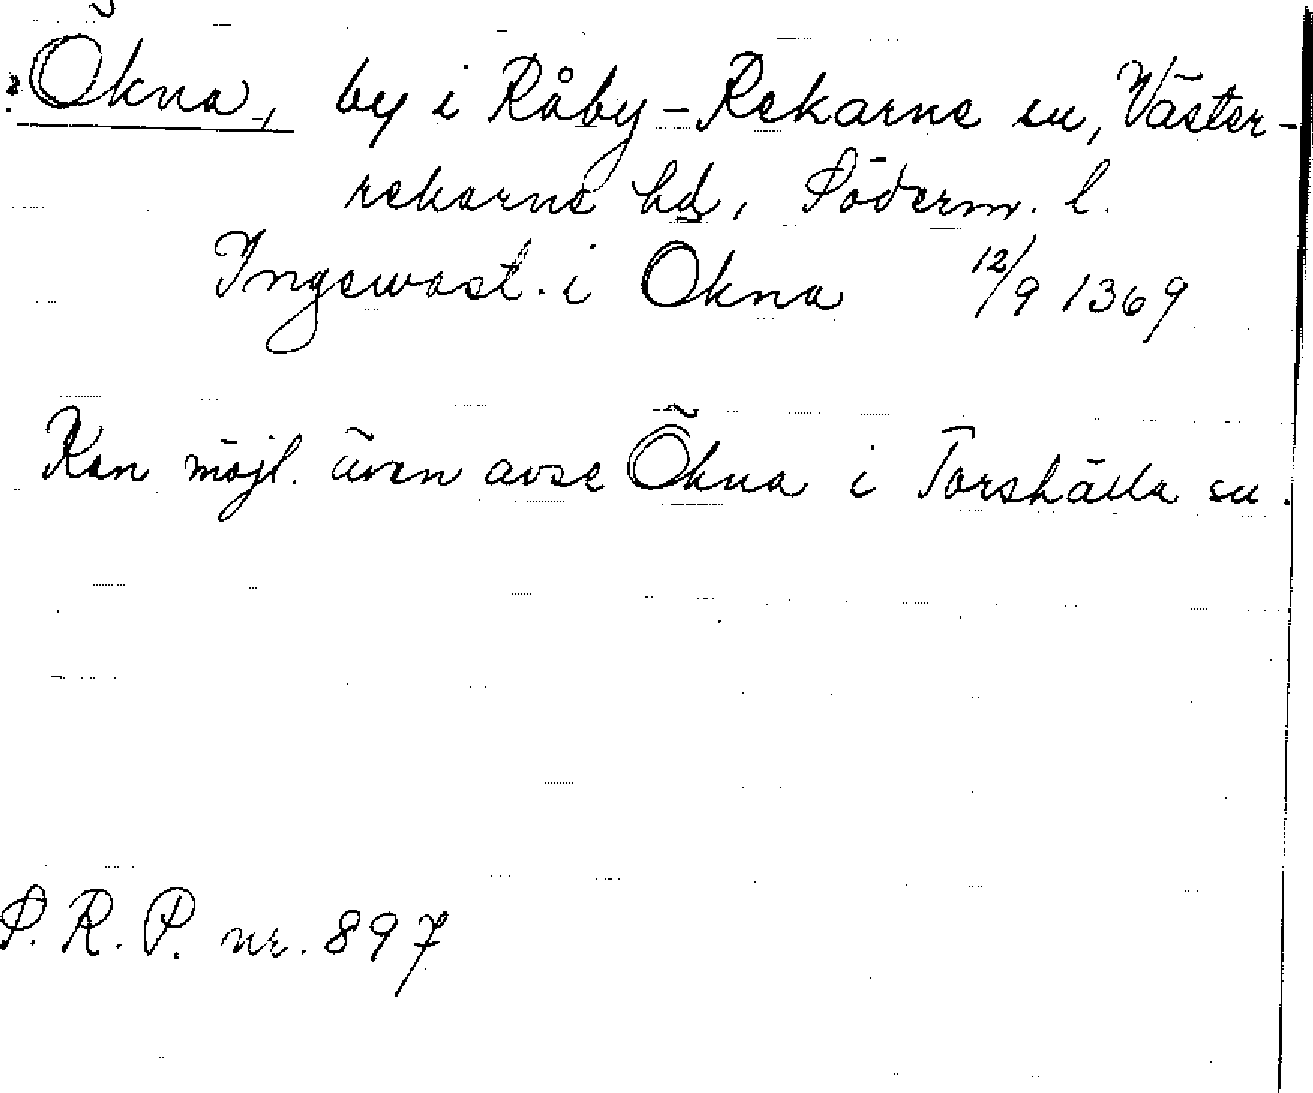 ? Ökna, by i Råby-Rekarne sn, Väster-
rekarne hd, Söderm. l.
Ingewast. i Okna 12/9 1369
Kan möjl. även avse Ökna i Torshälla sn.
S. R. P. nr. 897